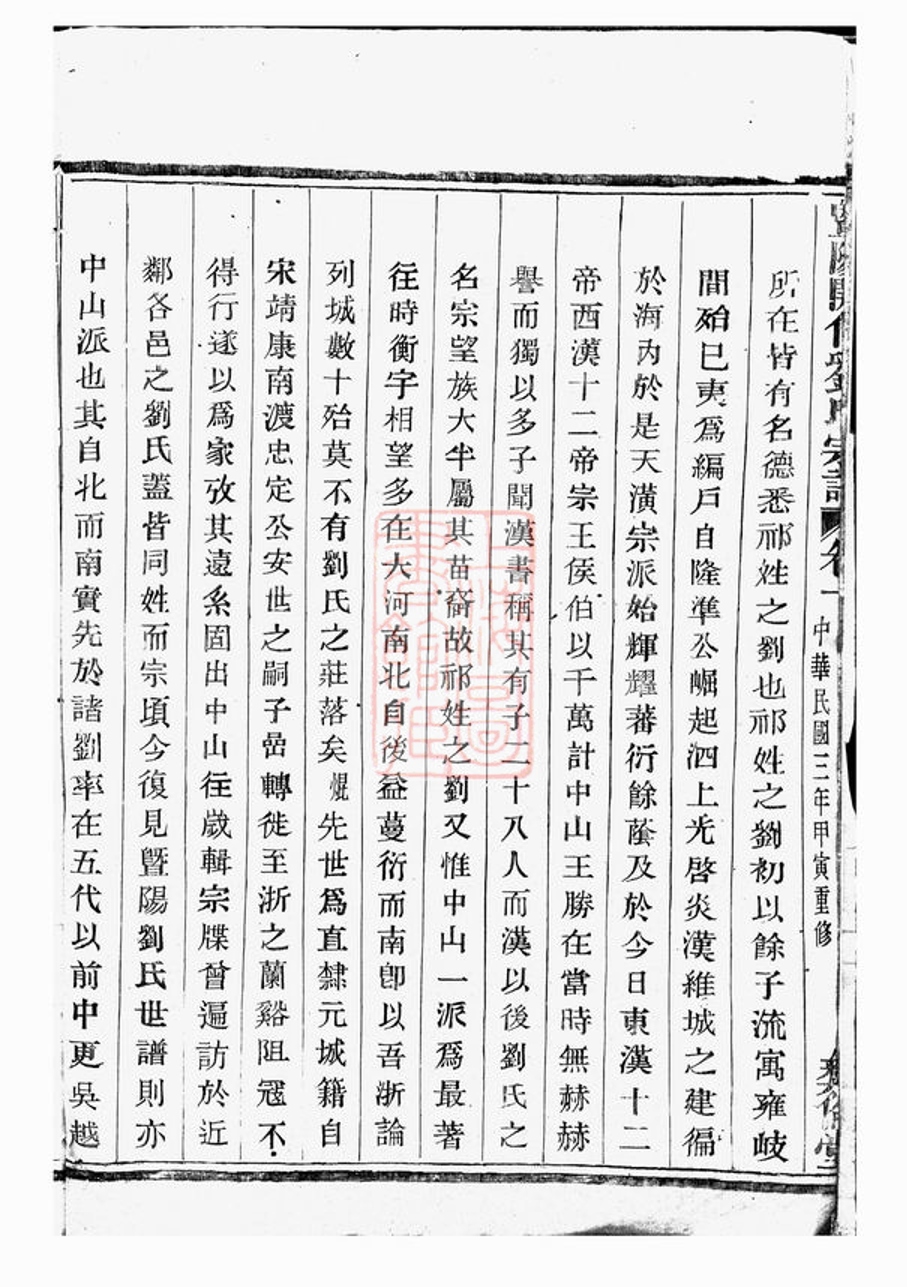 暨陽開化劉氏宗譜 卷一 中華民國三年甲寅重修
所在皆有名德悉祁姓之劉也祁姓之劉初以餘子流寓雍岐
間殆巳夷爲編戶自隆準公崛起泗上光啓炎漢維城之建徧
於海內於是天潢宗派始輝耀蕃衍餘蔭及於今日東漢十二
帝西漢十二帝宗王侯伯以千萬計中山王勝在當時無赫赫
譽而獨以多子聞漢書稱其有子二十八人而漢以後劉氏之
名宗望族大半屬其苗裔故祁姓之劉又惟中山一派爲最著
往時衡宇相望多在大河南北自後益蔓衍而南卽以吾浙論
列城數十殆莫不有劉氏之莊落矣焜先世爲直隸元城籍自
宋靖康南渡忠定公安世之嗣子嵒轉徙至浙之蘭谿阻寇不
得行遂以爲家攷其遠系固出中山往歲輯宗牒曾遍訪於近
鄰各邑之劉氏蓋皆同姓而宗頃今復見曁陽劉氏世譜則亦
中山派也其自北而南實先於諸劉率在五代以前中更吳越